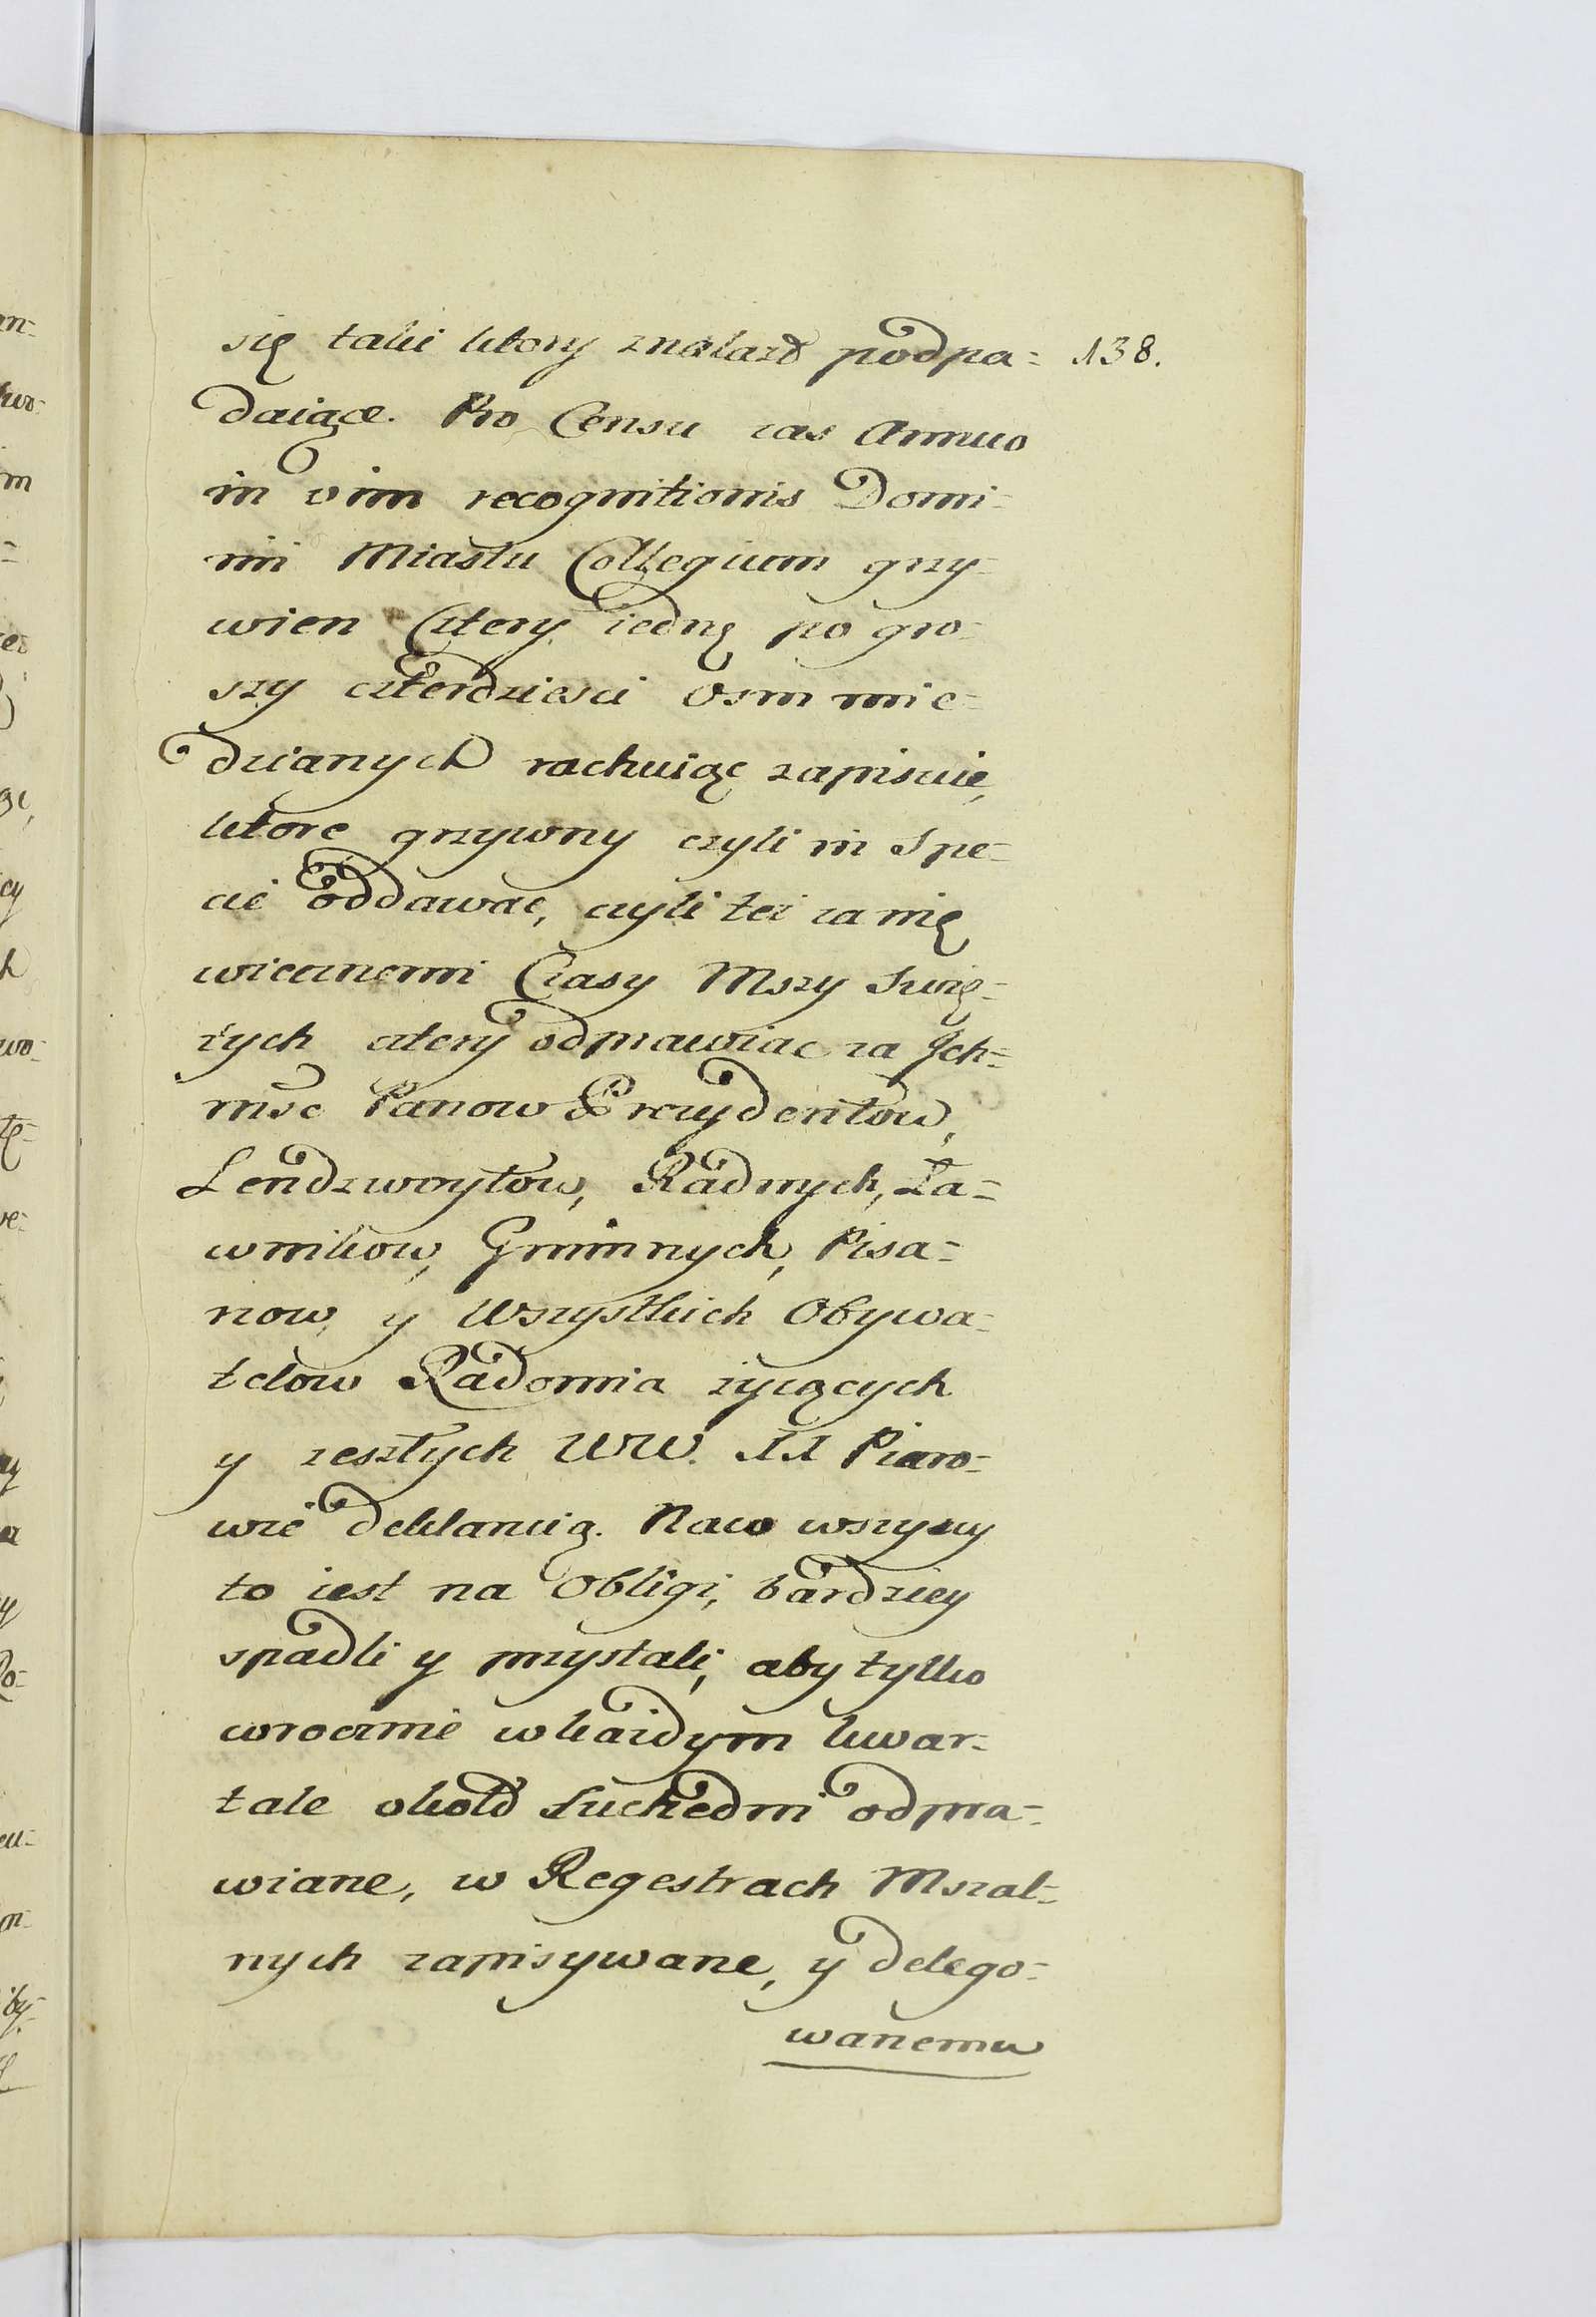 się taki ktory znalazł podpa= 138.
daiące. Pro Censu zas Annuo
in vim recognitionis Domi-
nii Miastu Collegium grzy-
wien Cztery iednę po gro-
szy czterdziesci Osm mie-
dzianych rachuiąc zapisuie,
ktore grzywny czyli in Spe-
cie oddawać, czyli też za nię
wiecznemi Czasy Mszy Swię-
tych cztery odprawiac za Ich-
msc Panow Prezydentow,
Lendzwoytow, Radnych, Ła-
wnikow, Gminnych, Pisa-
rzow, y Wszystkich Obywa-
telow Radomia zyiących
y zeszłych WW. XX Piaro-
wie deklaruią. Naco wszyscy
to iest na Obligi, bardziey
spadli y przystali, aby tylko
corocznie w każdym kwar-
tale około Suchedni odpra-
wiane, w Regestrach Mszal-
nych zapisywane, y delego-
wanemu